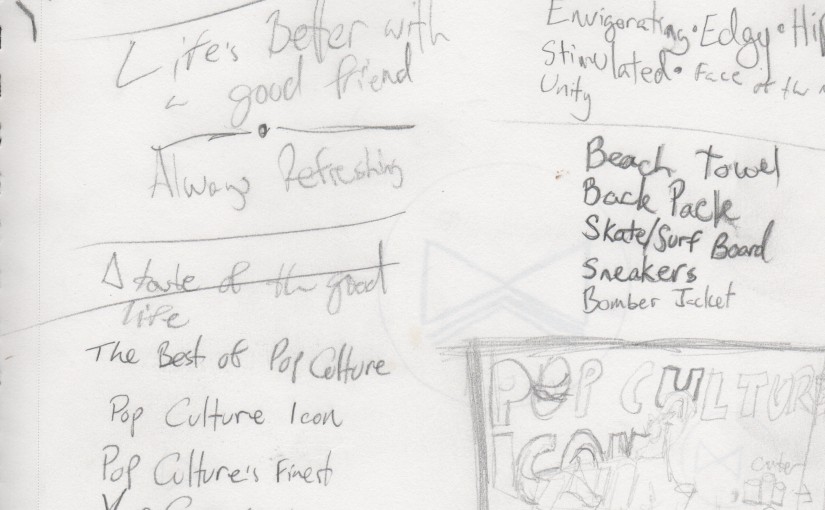 Life's Better with
a good friend
Always Refreshing
A taste of the good
life
The Best of Pop Culture
Pop Culture Icon
Pop Culture's Finest
Envigorating • Edgy •
Stimulated • Face of the
Unity
Beach Towel
Back Pack
Skate/Surf Board
Sneakers
Bomber Jacket
POP CULTURE
ICON